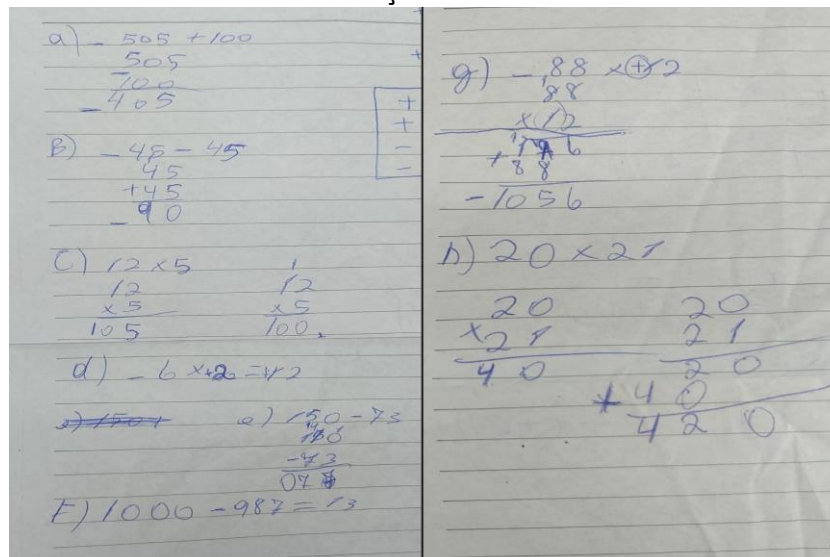 a) - 505 + 100
505
- 100
- 405
+
+
-
-
B) - 45 - 45
45
+45
- 90
C) 12 x 5
12
x 5
105
1
12
x 5
100
d) - 6 x +2 = 12
e) 150 - 73
- 73
077
F) 1000 - 987 = 13
g) - 88 x + 12
88
x 12
176
+ 88
- 1056
h) 20 x 21
20
x 21
40
20
21
20
+ 40
420